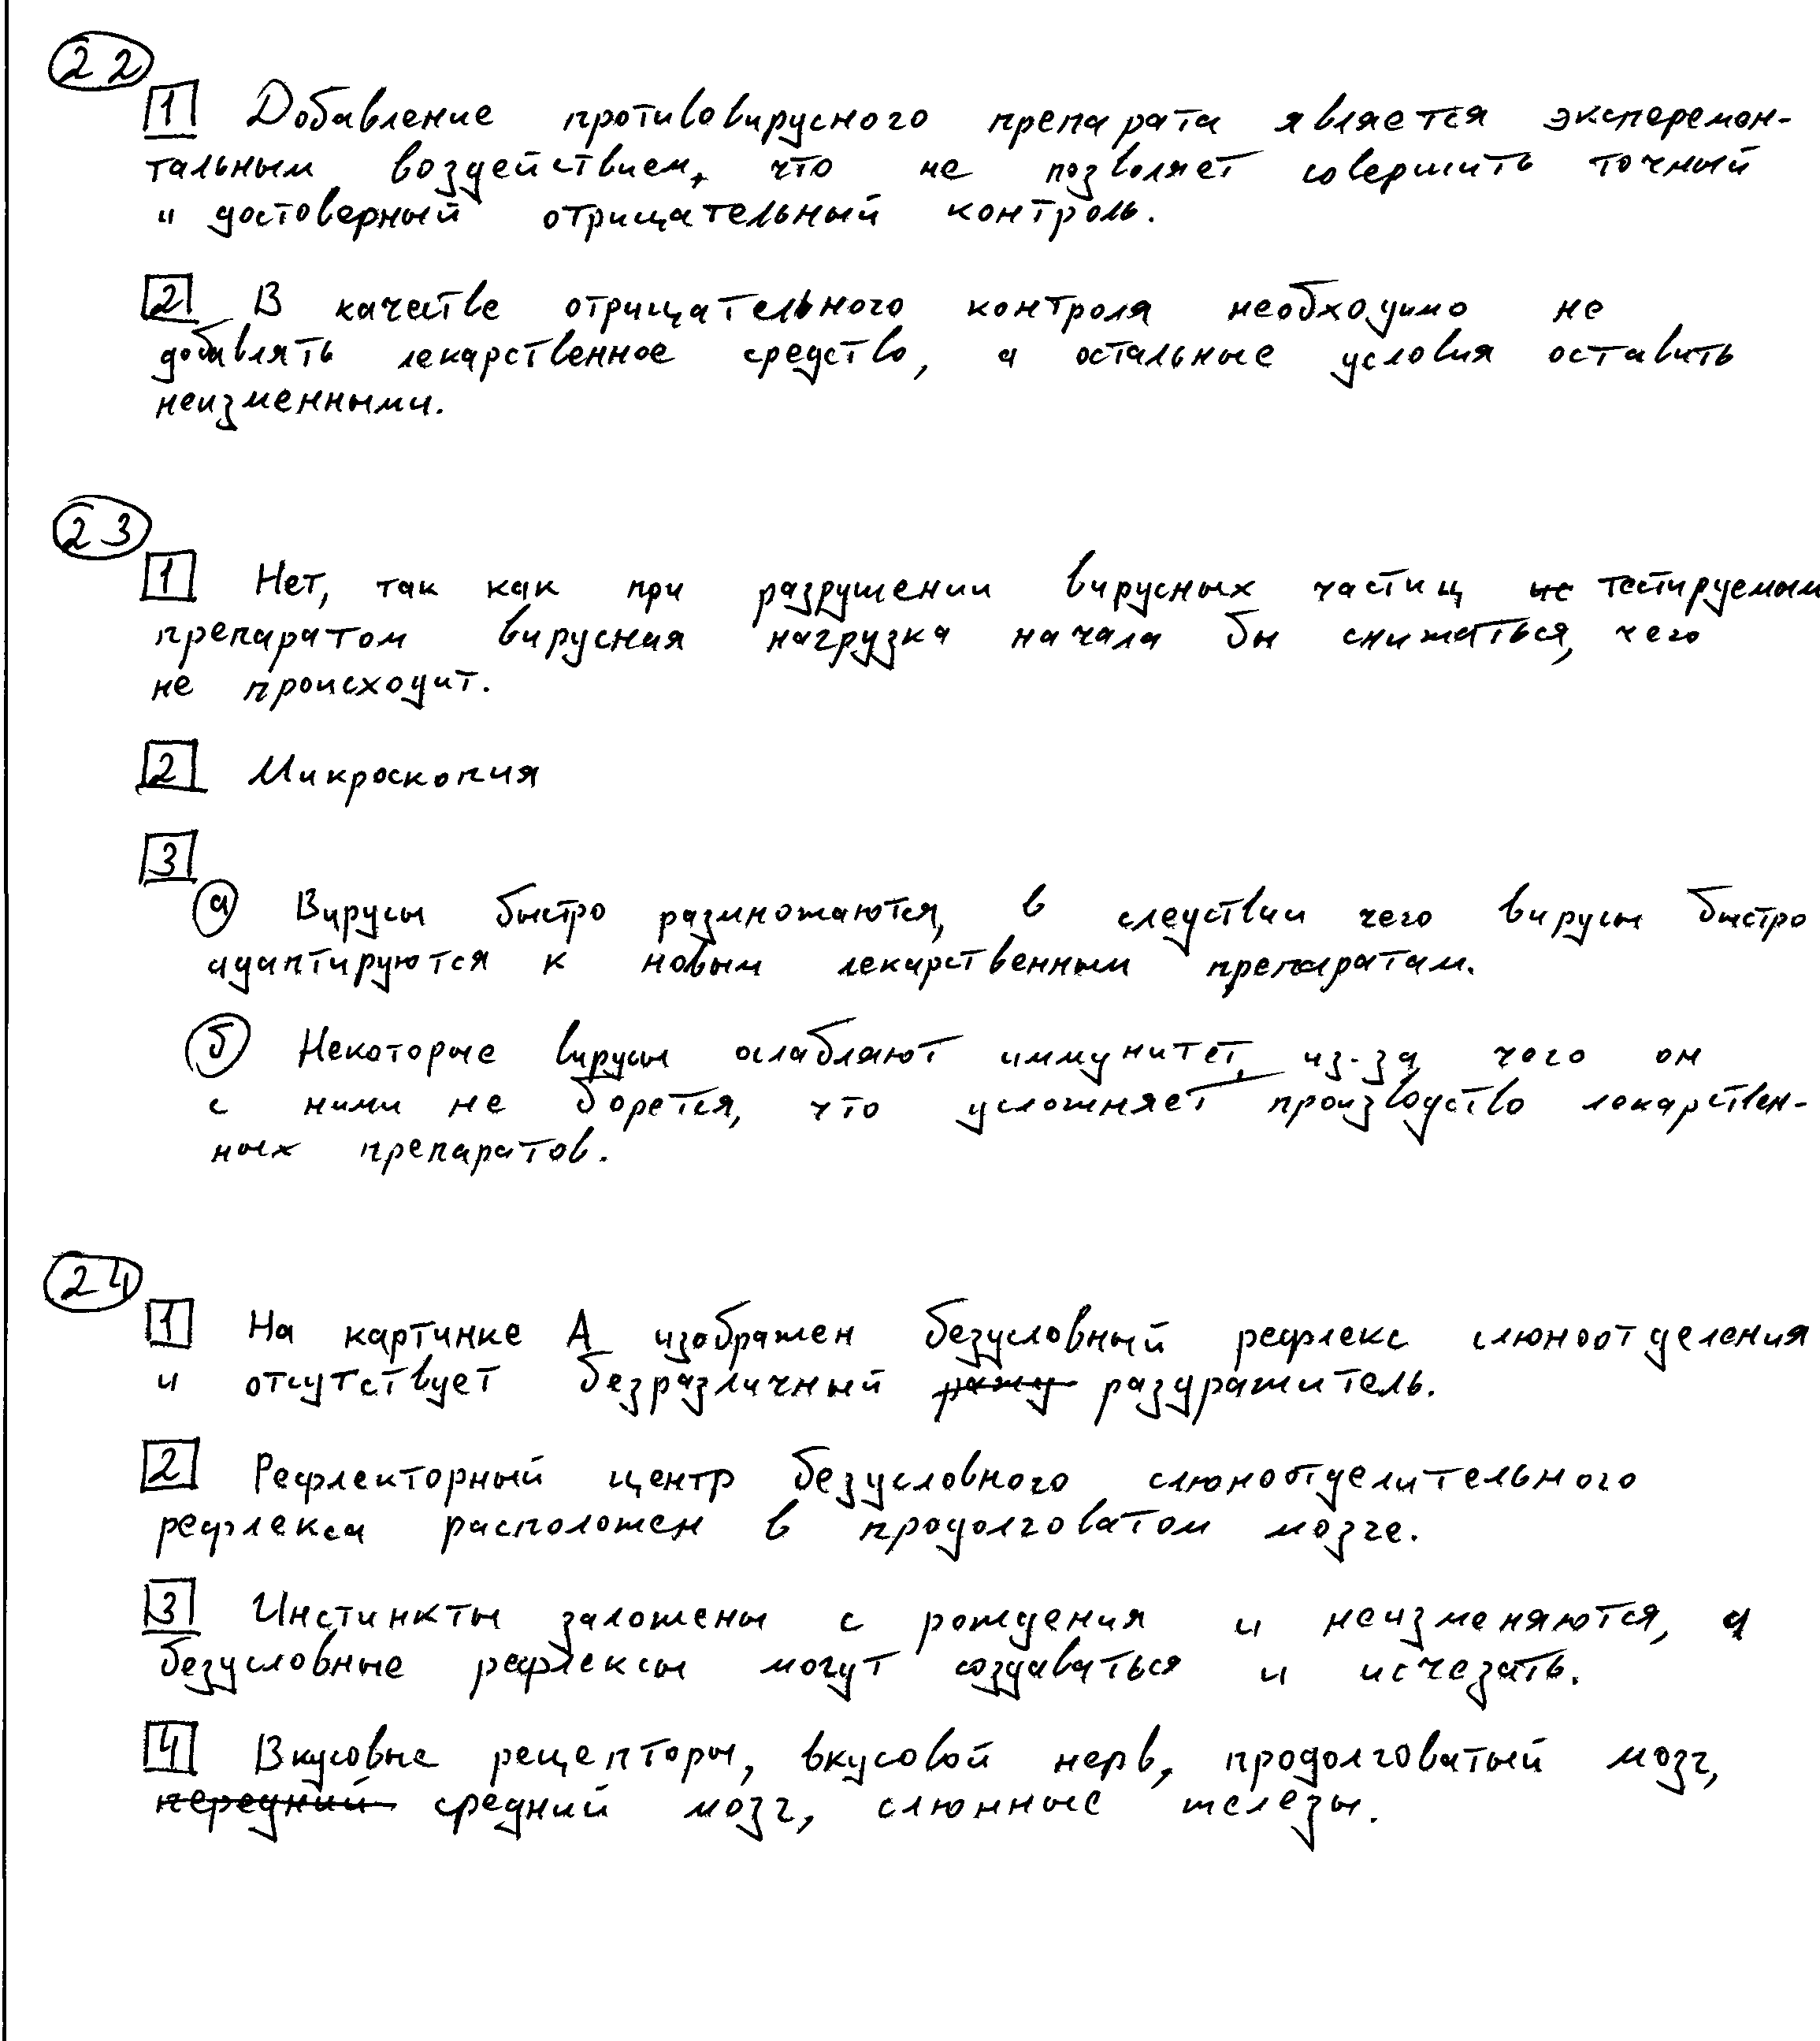 22
1 Добавление противовирусного препарата является эксперемен-
тальным воздействием, что не позволяет совершить точный
и достоверный отрицательный контроль.
2 В качестве отрицательного контроля необходимо не
добавлять лекарственное средство, а остальные условия оставить
неизменными.
23
1 Нет, так как при разрушении вирусных частиц не тестируемым
препаратом вирусная нагрузка начала бы снижаться, чего
не происходит.
2 Микроскопия
3
а Вирусы быстро размножаются, в следствии чего вирусы быстро
адаптируются к новым лекарственным препаратам.
б Некоторые вирусы ослабляют иммунитет, из-за чего он
с ними не борется, что усложняет производство лекарствен-
ных препаратов.
24
1 На картинке А изображен безусловный рефлекс слюноотделения
и отсутствует безразличный раздражитель.
2 Рефлекторный центр безусловного слюноотделительного
рефлекса расположен в продолговатом мозге.
3 Инстинкты заложены с рождения и неизменяются, а
безусловные рефлексы могут создаваться и исчезать.
4 Вкусовые рецепторы, вкусовой нерв, продолговатый мозг,
передний средний мозг, слюнные железы.